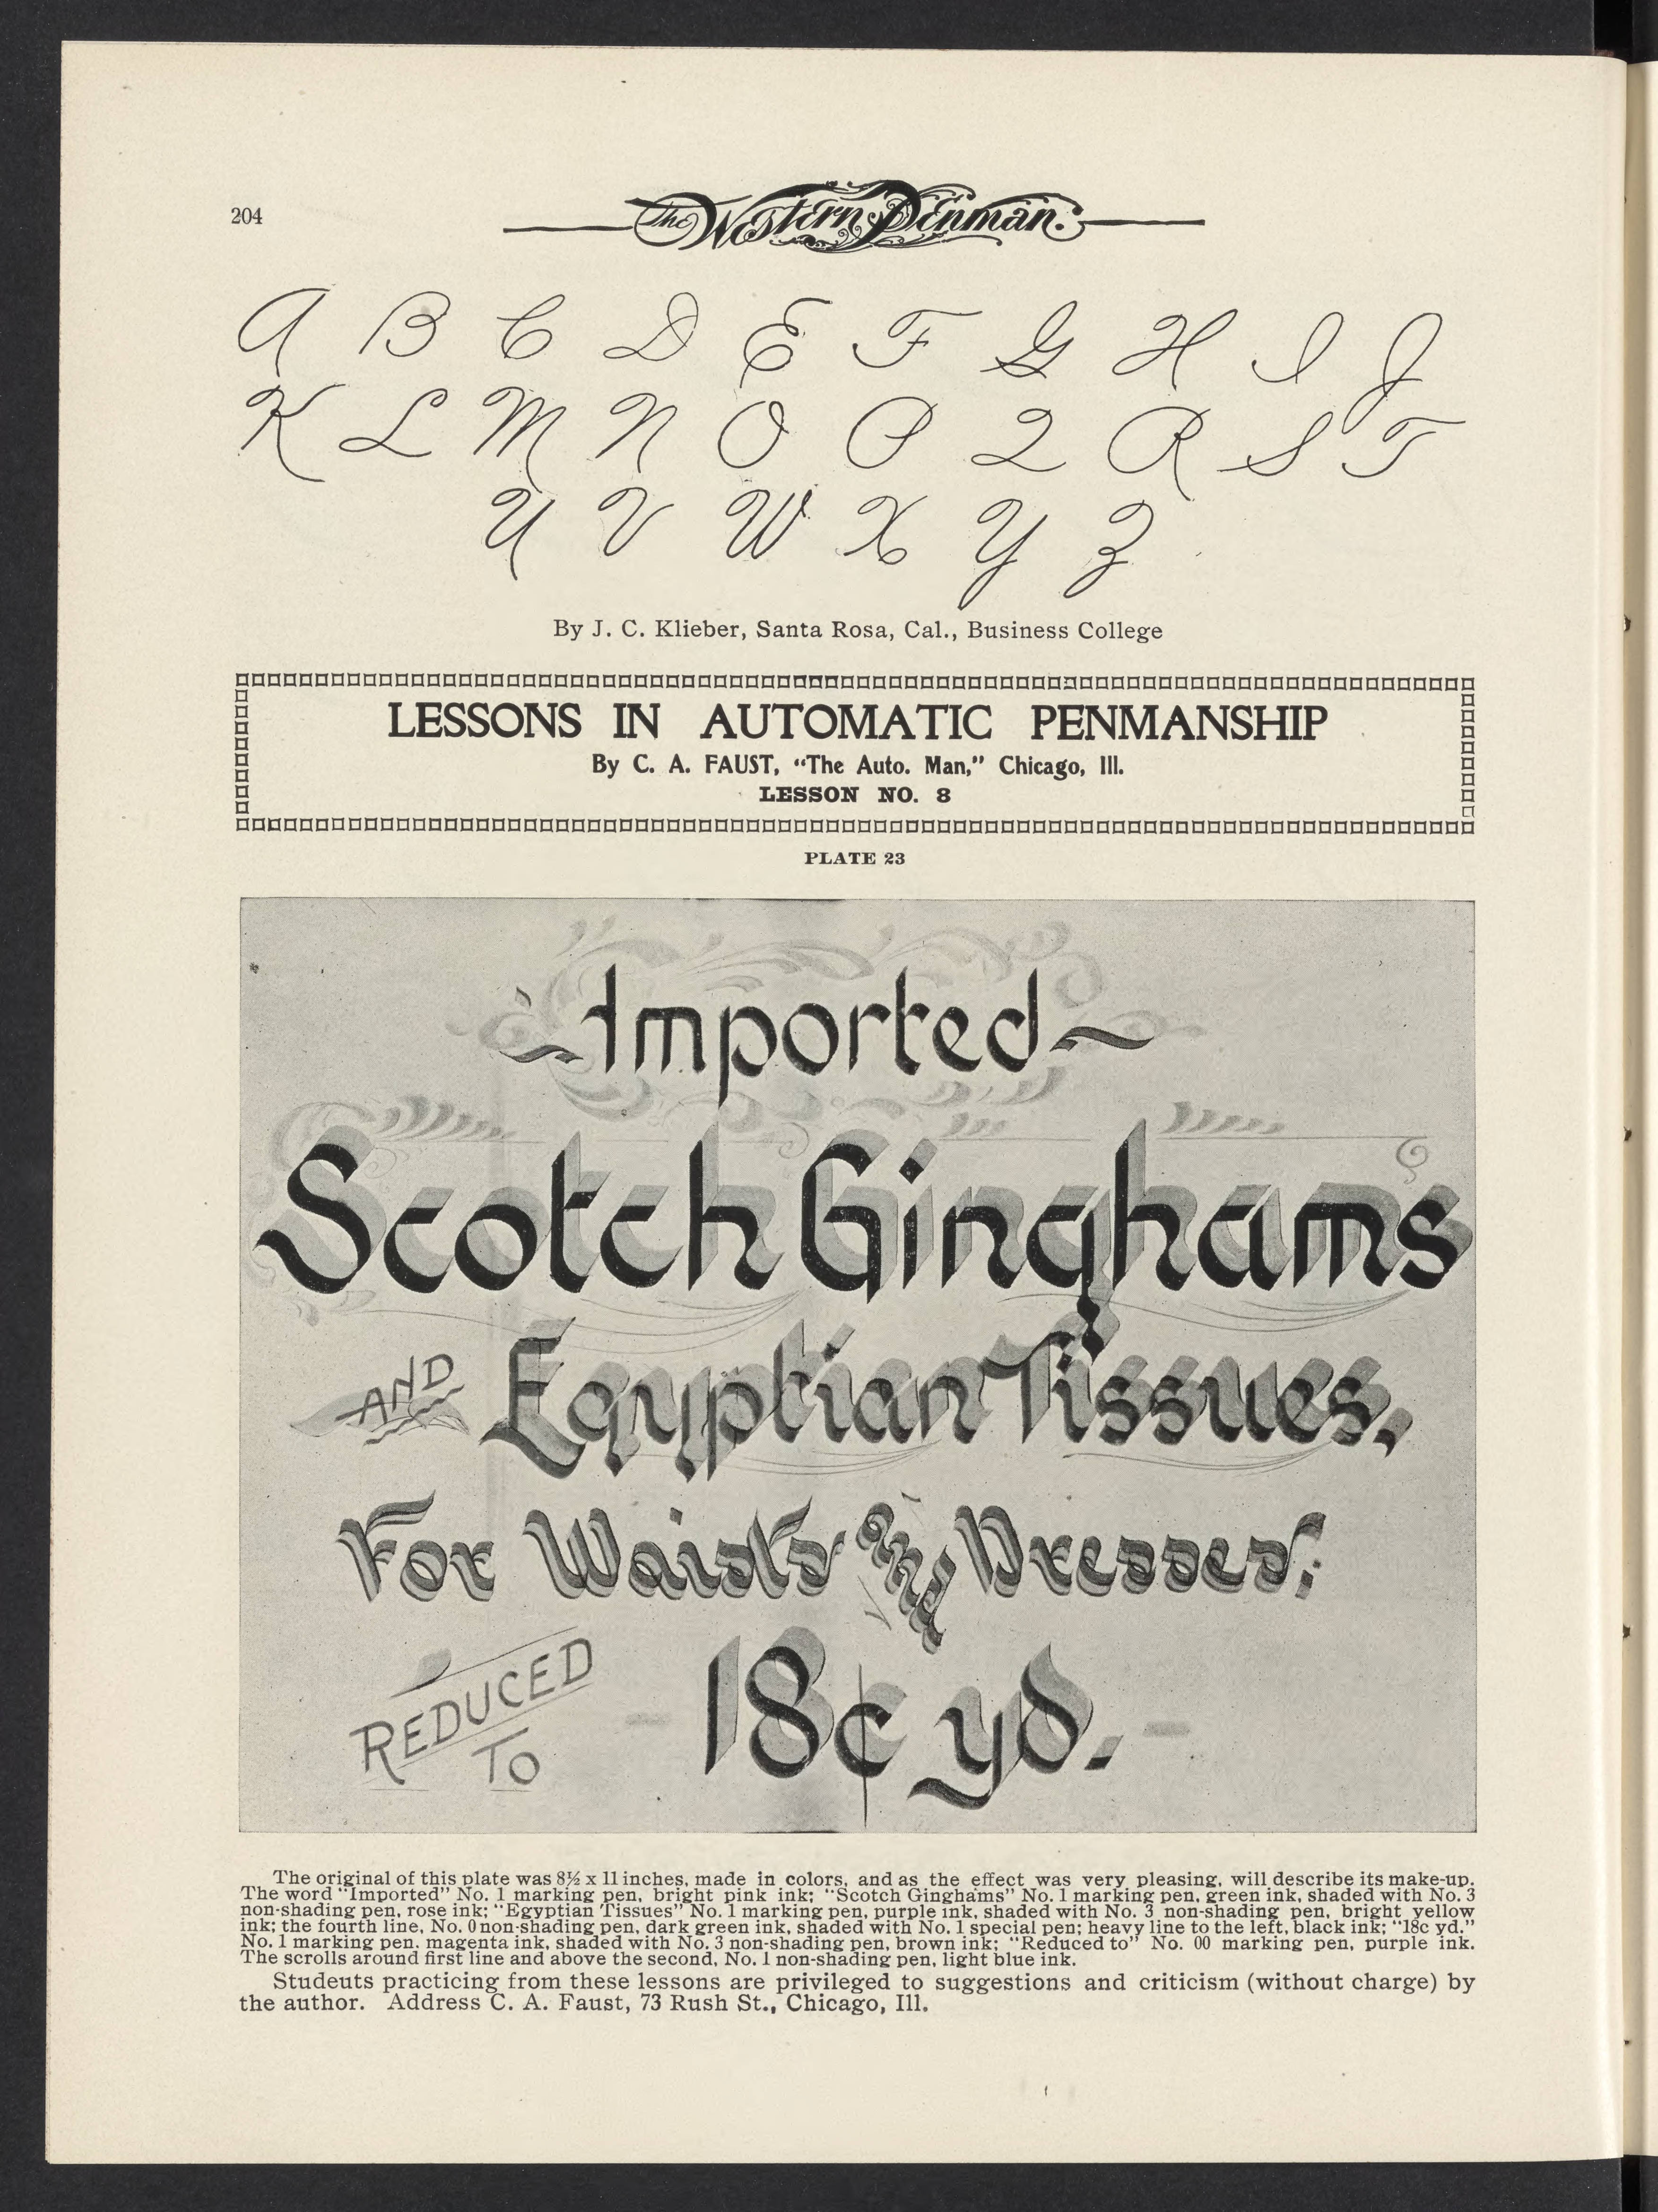 204
The Western Penman.
A B C D E F G H I J
K L M N O P Q R S T
U V W X Y Z
By J. C. Klieber, Santa Rosa, Cal., Business College
LESSONS IN AUTOMATIC PENMANSHIP
By C. A. FAUST, “The Auto. Man,” Chicago, Ill.
LESSON NO. 8
PLATE 23
Imported
Scotch Ginghams
AND Egyptian Tissues,
For Waists and Dresses;
REDUCED TO 18¢ yd.
The original of this plate was 8½ x 11 inches, made in colors, and as the effect was very pleasing, will describe its make-up.
The word “Imported” No. 1 marking pen, bright pink ink; “Scotch Ginghams” No. 1 marking pen, green ink, shaded with No. 3
non-shading pen, rose ink; “Egyptian Tissues” No. 1 marking pen, purple ink, shaded with No. 3 non-shading pen, bright yellow
ink; the fourth line, No. 0 non-shading pen, dark green ink, shaded with No. 1 special pen; heavy line to the left, black ink; “18c yd.”
No. 1 marking pen, magenta ink, shaded with No. 3 non-shading pen, brown ink; “Reduced to” No. 00 marking pen, purple ink.
The scrolls around first line and above the second, No. 1 non-shading pen, light blue ink.
Studeuts practicing from these lessons are privileged to suggestions and criticism (without charge) by
the author. Address C. A. Faust, 73 Rush St., Chicago, Ill.